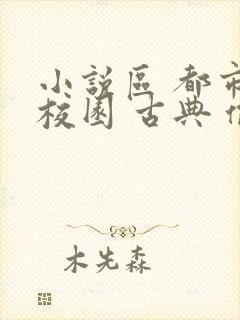 小説區 都市
校園 古典
木先森